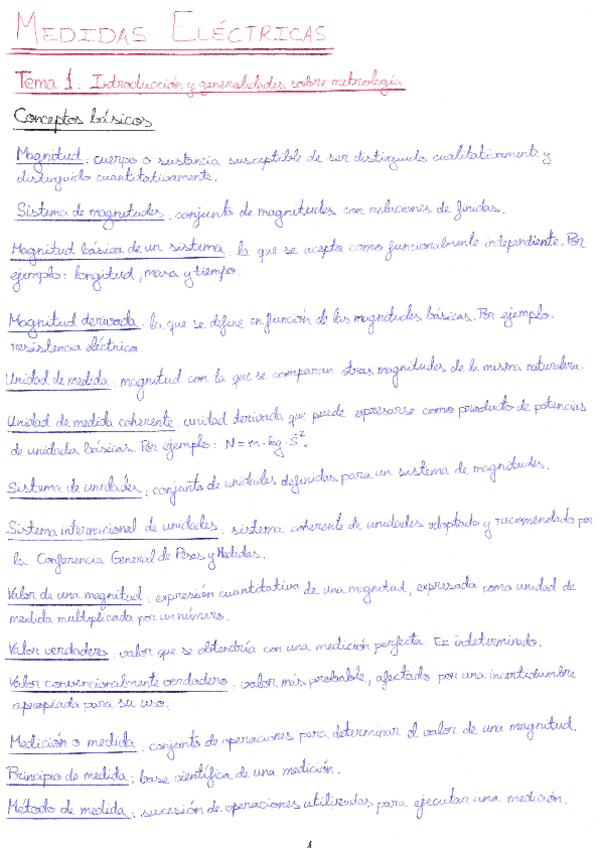 MEDIDAS ELÉCTRICAS
Tema 1: Introducción y generalidades sobre metrología
Conceptos básicos
Magnitud: cuerpo o sustancia susceptible de ser distinguido cualitativamente y
distinguido cuantitativamente.
Sistema de magnitudes: conjunto de magnitudes con relaciones definidas.
Magnitud básica de un sistema: la que se acepta como funcionalmente independiente. Por
ejemplo: longitud, masa y tiempo.
Magnitud derivada: la que se define en función de las magnitudes básicas. Por ejemplo:
resistencia eléctrica.
Unidad de medida: magnitud con la que se comparan otras magnitudes de la misma naturaleza.
Unidad de medida coherente: unidad derivada que puede expresarse como producto de potencias
de unidades básicas. Por ejemplo: N = m · kg · s⁻².
Sistema de unidades: conjunto de unidades definidas para un sistema de magnitudes.
Sistema internacional de unidades: sistema coherente de unidades adoptado y recomendado por
la Conferencia General de Pesas y Medidas.
Valor de una magnitud: expresión cuantitativa de una magnitud, expresada como unidad de
medida multiplicada por un número.
Valor verdadero: valor que se obtendría con una medición perfecta. Es indeterminado.
Valor convencionalmente verdadero: valor más probable, afectado por una incertidumbre
apropiada para su uso.
Medición o medida: conjunto de operaciones para determinar el valor de una magnitud.
Principio de medida: base científica de una medición.
Método de medida: sucesión de operaciones utilizadas para ejecutar una medición.
1